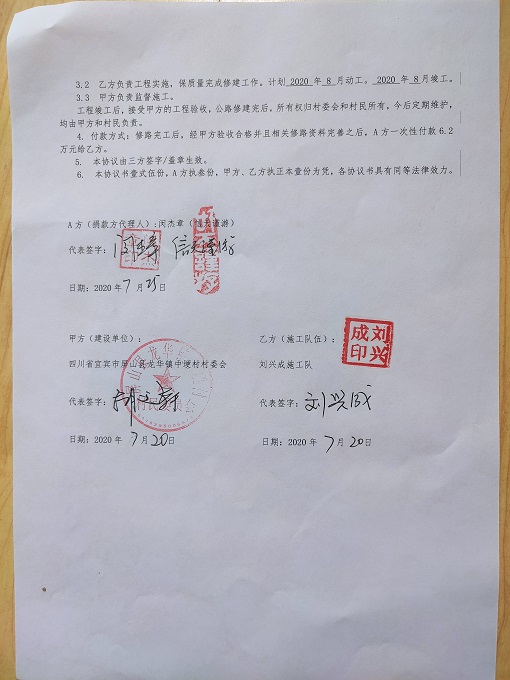 3.2 乙方负责工程实施，保质量完成修建工作。计划 2020 年 8 月动工。 2020 年 8 月竣工。
3.3 甲方负责监督施工。
工程竣工后，接受甲方的工程验收，公路修建完后，所有权归村委会和村民所有，今后定期维护，
均由甲方和村民负责。
4. 付款方式：修路完工后，经甲方验收合格并且相关修路资料完善之后，A方一次性付款 6.2
万元给乙方。
5. 本协议由三方签字/盖章生效。
6. 本协议书壹式伍份，A方执叁份，甲方、乙方执正本壹份为凭，各协议书具有同等法律效力。
A方（捐款方代理人）:闵杰章（信天谨游）
代表签字：信天谨游
日期：2020 年 7 月 25 日
甲方（建设单位）：
四川省宜宾市屏山县龙华镇中埂村村委会
代表签字：
日期：2020 年 7 月 20 日
乙方（施工队伍）：
刘兴成印
刘兴成施工队
代表签字：刘兴成
日期：2020 年 7 月 20 日